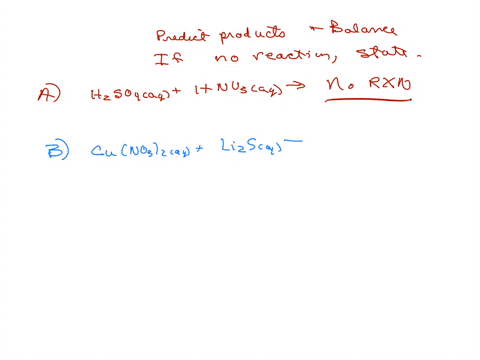 Predict products + Balance
If no reaction, state.
A) H₂SO₄(aq) + HNO₃(aq) → No RXN
B) Cu(NO₃)₂(aq) + Li₂S(aq) —